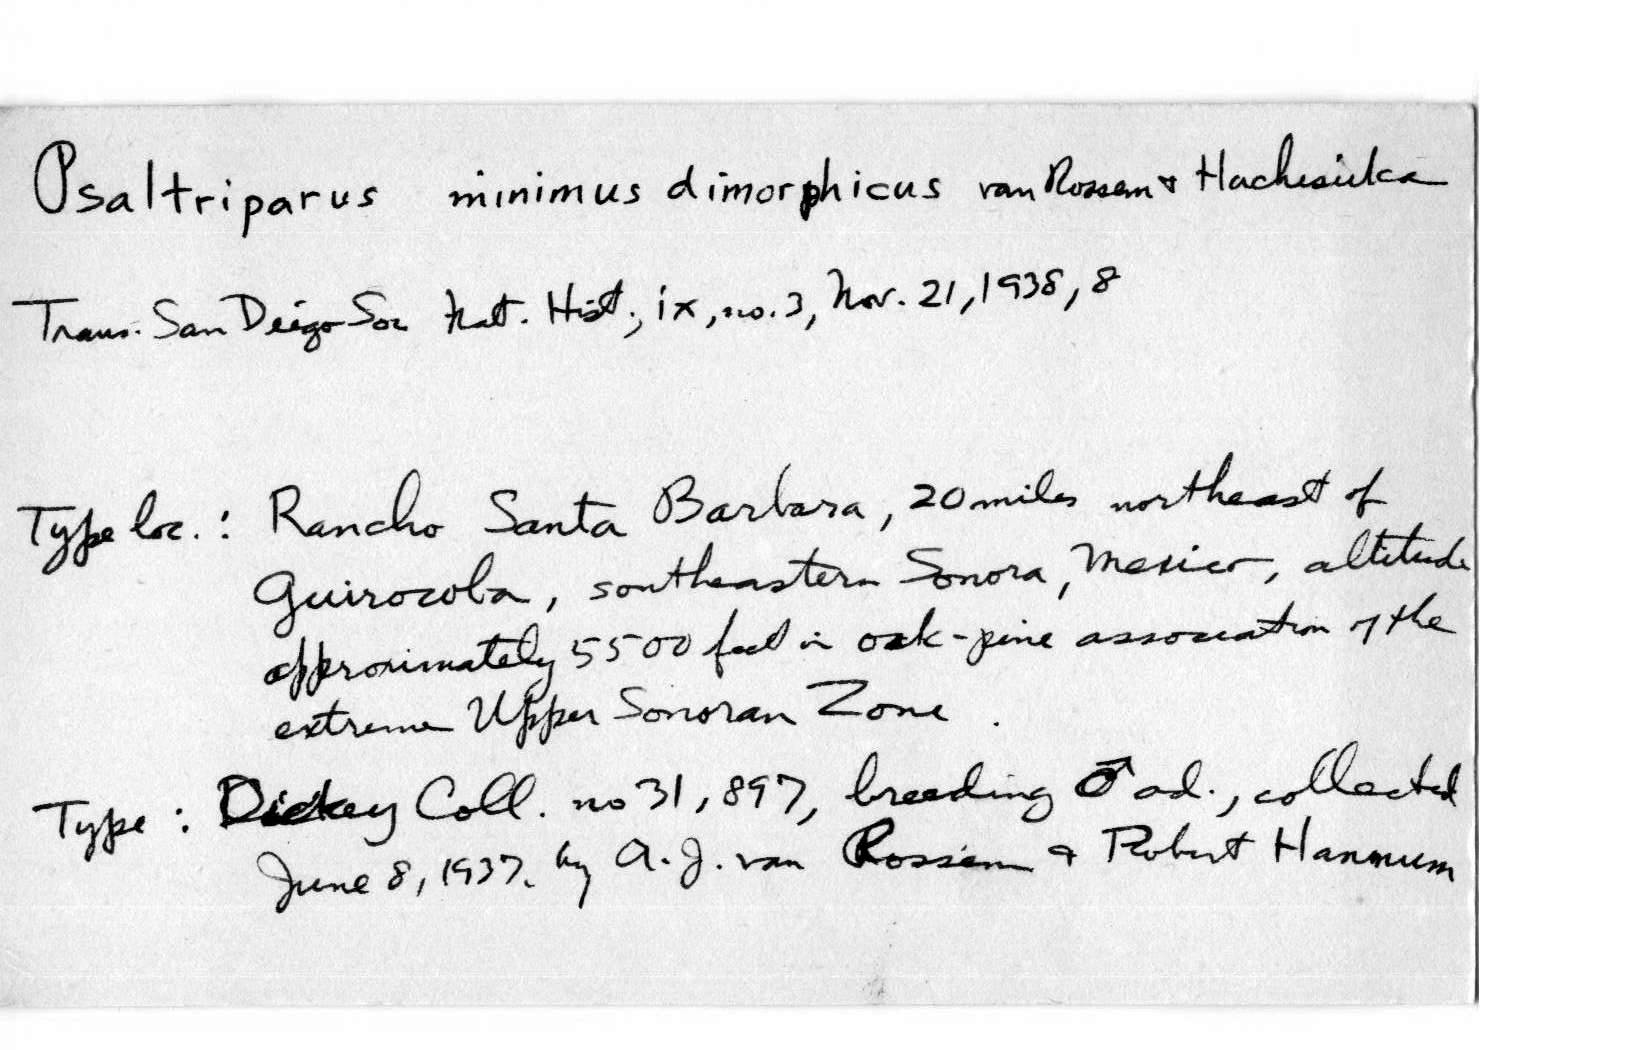 Psaltriparus minimus dimorphicus van Rossem & Hachisuka
Trans. San Diego Soc Nat. Hist., ix, no. 3, Nov. 21, 1938, 8
Type loc. : Rancho Santa Barbara, 20 miles northeast of
Guirocoba, southeastern Sonora, Mexico, altitude
approximately 5500 feet in oak-pine association of the
extreme Upper Sonoran Zone.
Type : Dickey Coll. no 31,897, breeding ♂ ad., collected
June 8, 1937. by A. J. van Rossem & Robert Hannum